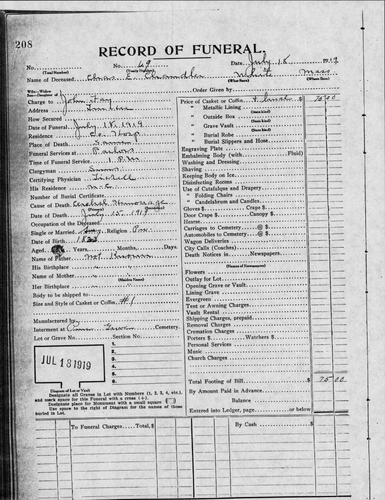 208
RECORD OF FUNERAL.
No. No. 49 Date, July 15 1919
(Total Number) (Yearly Number)
Name of Deceased Chas E. Chandler White Mass
Charge to John Fay Order Given
Date of Funeral July 18, 1919
Place of Death
Funeral Services at Parlors
Time of Funeral Service 1 P.M.
Clergyman
Certifying Physician
His Residence N.C.
Number of Burial Certificate
Cause of Death Cerebral Hemorrage
Date of Death July 15, 1919
Occupation of the Deceased
Single or Married Religion
Date of Birth
Aged Years Months, Days
Name of Father Not Known
His Birthplace "
Name of Mother "
(Maiden Name)
Her Birthplace "
Body to be shipped to
Size and Style of Casket or Coffin #1
Manufactured by
Interment at Cemetery.
Lot or Grave No. Section No.
1
2
3
4
5
6
7
8
JUL 18 1919
Diagram of Lot or Vault
Designate all Graves in Lot with Numbers (1, 2, 3, 4, etc.)
and mark space for this Funeral with a cross (+).
Designate place for Monument with a small square
Use space to the right of Diagram for the names of those
buried in Lot.
Price of Casket or Coffin 75 00
" Metallic Lining
" Outside Box
" Grave Vault
" Burial Robe
" Burial Slippers and Hose
Engraving Plate
Embalming Body (with Fluid)
Washing and Dressing
Shaving
Keeping Body on Ice
Disinfecting Rooms
Use of Catafalque and Drapery
" Folding Chairs
" Candelabrum and Candles
Gloves $ Crape $
Door Crape $ Canopy $
Hearse
Carriages to Cemetery @ $
Automobiles to Cemetery @ $
Wagon Deliveries
City Calls (Coaches)
Death Notices in Newspapers
(Names of Newspapers)
Flowers
Outlay for Lot
Opening Grave or Vault
Lining Grave
Evergreen
Tent or Awning Charges
Vault Rental
Shipping Charges, prepaid
Removal Charges
Cremation Charges
Porters $ Watchers $
Personal Services
Music
Church Charges
Total Footing of Bill $ 75 00
By Amount Paid in Advance
Balance
Entered into Ledger, page or below
To Funeral Charges Total $ By Cash $